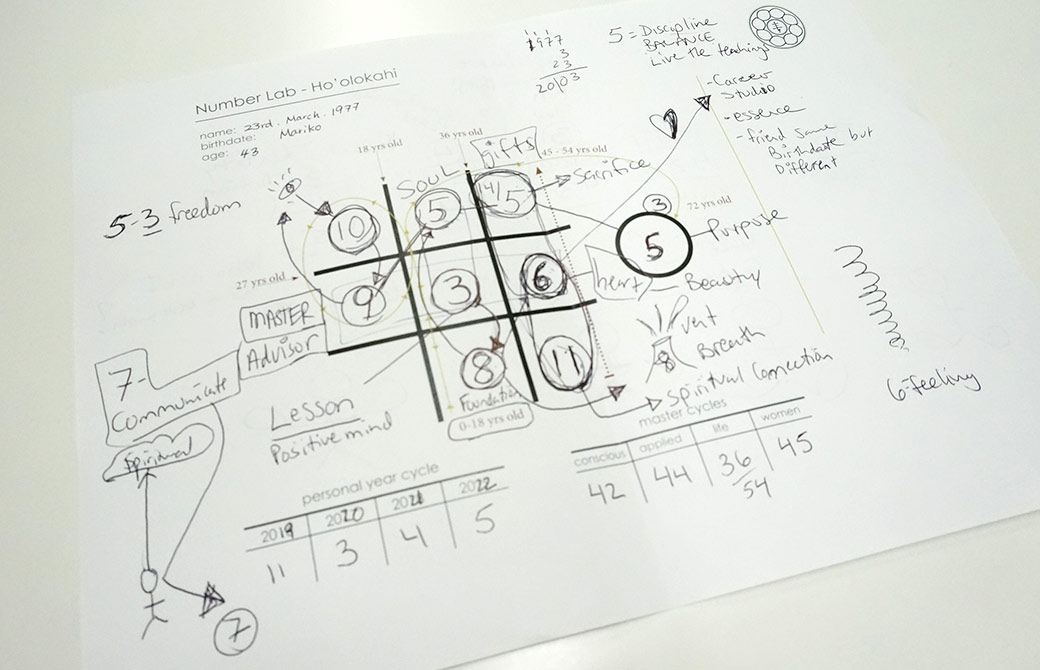 Number Lab - Ho'olokahi
name: 23rd. March. 1977
birthdate: Mariko
age: 43
1977
3
23
20/03
5 = Discipline
BALANCE
Live the teachings
- Career
Studio
- essence
- friend Same
Birthdate but
Different
18 yrs old
36 yrs old
gifts
45 - 54 yrs old
SOUL
Sacrifice
5-3 freedom
10
5
14/5
3
72 yrs old
5
Purpose
27 yrs old
9
3
6
heart
Beautiful
MASTER
Advisor
8
11
vent
8
Breath
Spiritual Connection
6-feeling
7-
Communicate
Foundation
0-18 yrs old
Lesson
Positive mind
Spiritual
7
personal year cycle
2019
2020
2021
2022
11
3
4
5
master cycles
conscious
applied
life
women
42
44
36/54
45